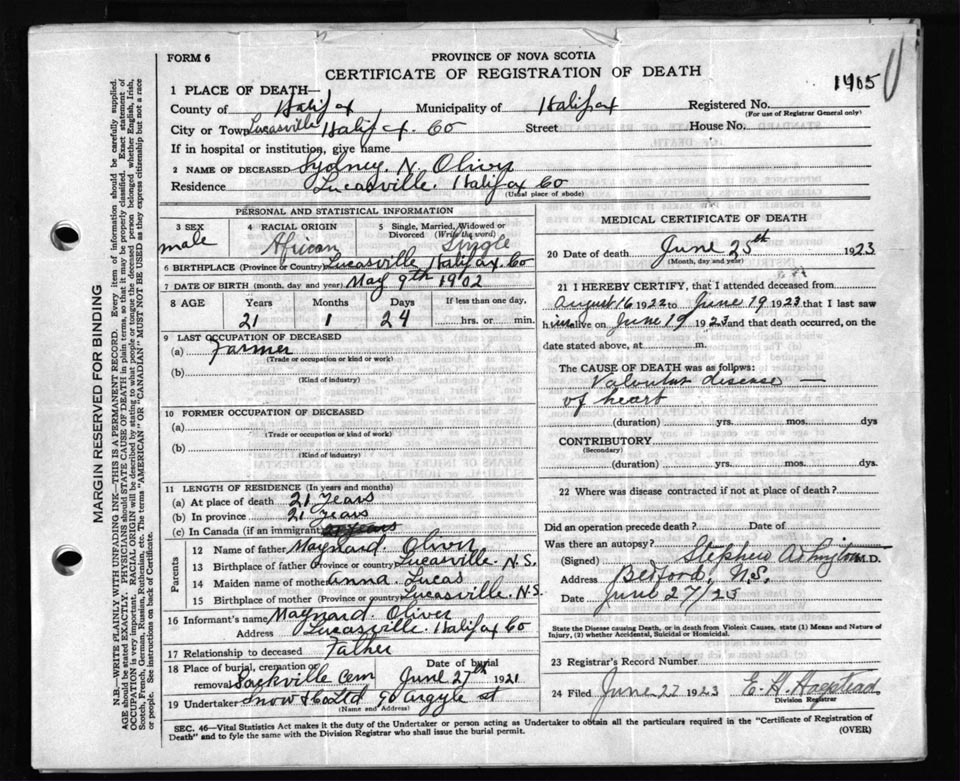 FORM 6
PROVINCE OF NOVA SCOTIA
CERTIFICATE OF REGISTRATION OF DEATH
1905
1 PLACE OF DEATH—
County of Halifax Municipality of Halifax Registered No.
(For use of Registrar General only)
City or Town Lucasville Halifax. Co Street House No.
If in hospital or institution, give name
2 NAME OF DECEASED Sydney. N. Oliver
Residence Lucasville. Halifax Co
(Usual place of abode)
PERSONAL AND STATISTICAL INFORMATION
3 SEX 4 RACIAL ORIGIN 5 Single, Married, Widowed or Divorced (Write the word)
male African Single
6 BIRTHPLACE (Province or Country) Lucasville Halifax. Co
7 DATE OF BIRTH (month, day and year) May 9th 1902
8 AGE Years Months Days If less than one day,
21 1 24 hrs. or min.
9 LAST OCCUPATION OF DECEASED
(a) Farmer
(Trade or occupation or kind or work)
(b)
(Kind of industry)
10 FORMER OCCUPATION OF DECEASED
(a)
(Trade or occupation or kind of work)
(b)
(Kind of industry)
11 LENGTH OF RESIDENCE (In years and months)
(a) At place of death 21 years
(b) In province 21 years
(c) In Canada (if an immigrant)
Parents
12 Name of father Maynard. Oliver
13 Birthplace of father (Province or country) Lucasville. N.S.
14 Maiden name of mother Anna. Lucas
15 Birthplace of mother (Province or country) Lucasville. N.S.
16 Informant's name Maynard Oliver
Address Lucasville. Halifax Co
17 Relationship to deceased Father
18 Place of burial, cremation or removal Sackville Cem Date of burial June 27th 1921
19 Undertaker Snow & Co Ltd 90 Argyle st
(Name and Address)
MEDICAL CERTIFICATE OF DEATH
20 Date of death June 25th 1923
(Month, day and year)
21 I HEREBY CERTIFY, that I attended deceased from
August 16 1922 to June 19 1923 that I last saw
him alive on June 19 1923 and that death occurred, on the
date stated above, at m.
The CAUSE OF DEATH was as follows:
Valvular disease —
of heart
(duration) yrs. mos. dys
CONTRIBUTORY
(Secondary)
(duration) yrs. mos. dys.
22 Where was disease contracted if not at place of death?
Did an operation precede death? Date of
Was there an autopsy?
(Signed) Stephen M.D.
Address Bedford, N.S.
Date June 27/23
State the Disease causing Death, or in death from Violent Causes, state (1) Means and Nature of
Injury, (2) whether Accidental, Suicidal or Homicidal.
23 Registrar's Record Number
24 Filed June 27 1923 E. H.
Division Registrar
SEC. 46—Vital Statistics Act makes it the duty of the Undertaker or person acting as Undertaker to obtain all the particulars required in the "Certificate of Registration of
Death" and to fyle the same with the Division Registrar who shall issue the burial permit.
(OVER)
MARGIN RESERVED FOR BINDING
N.B.—WRITE PLAINLY WITH UNFADING INK—THIS IS A PERMANENT RECORD. Every item of information should be carefully supplied.
AGE should be stated EXACTLY. PHYSICIANS should STATE CAUSE OF DEATH in plain terms, so that it may be properly classified. Exact statement of
OCCUPATION is very important. RACIAL ORIGIN will be described by stating to what people or tongue the deceased person belonged whether English, Irish,
Scotch, French, German, Russian, Ruthenian, etc. The terms "AMERICAN" or "CANADIAN" MUST NOT BE USED as they express citizenship but not a race
or people. See instructions on back of Certificate.